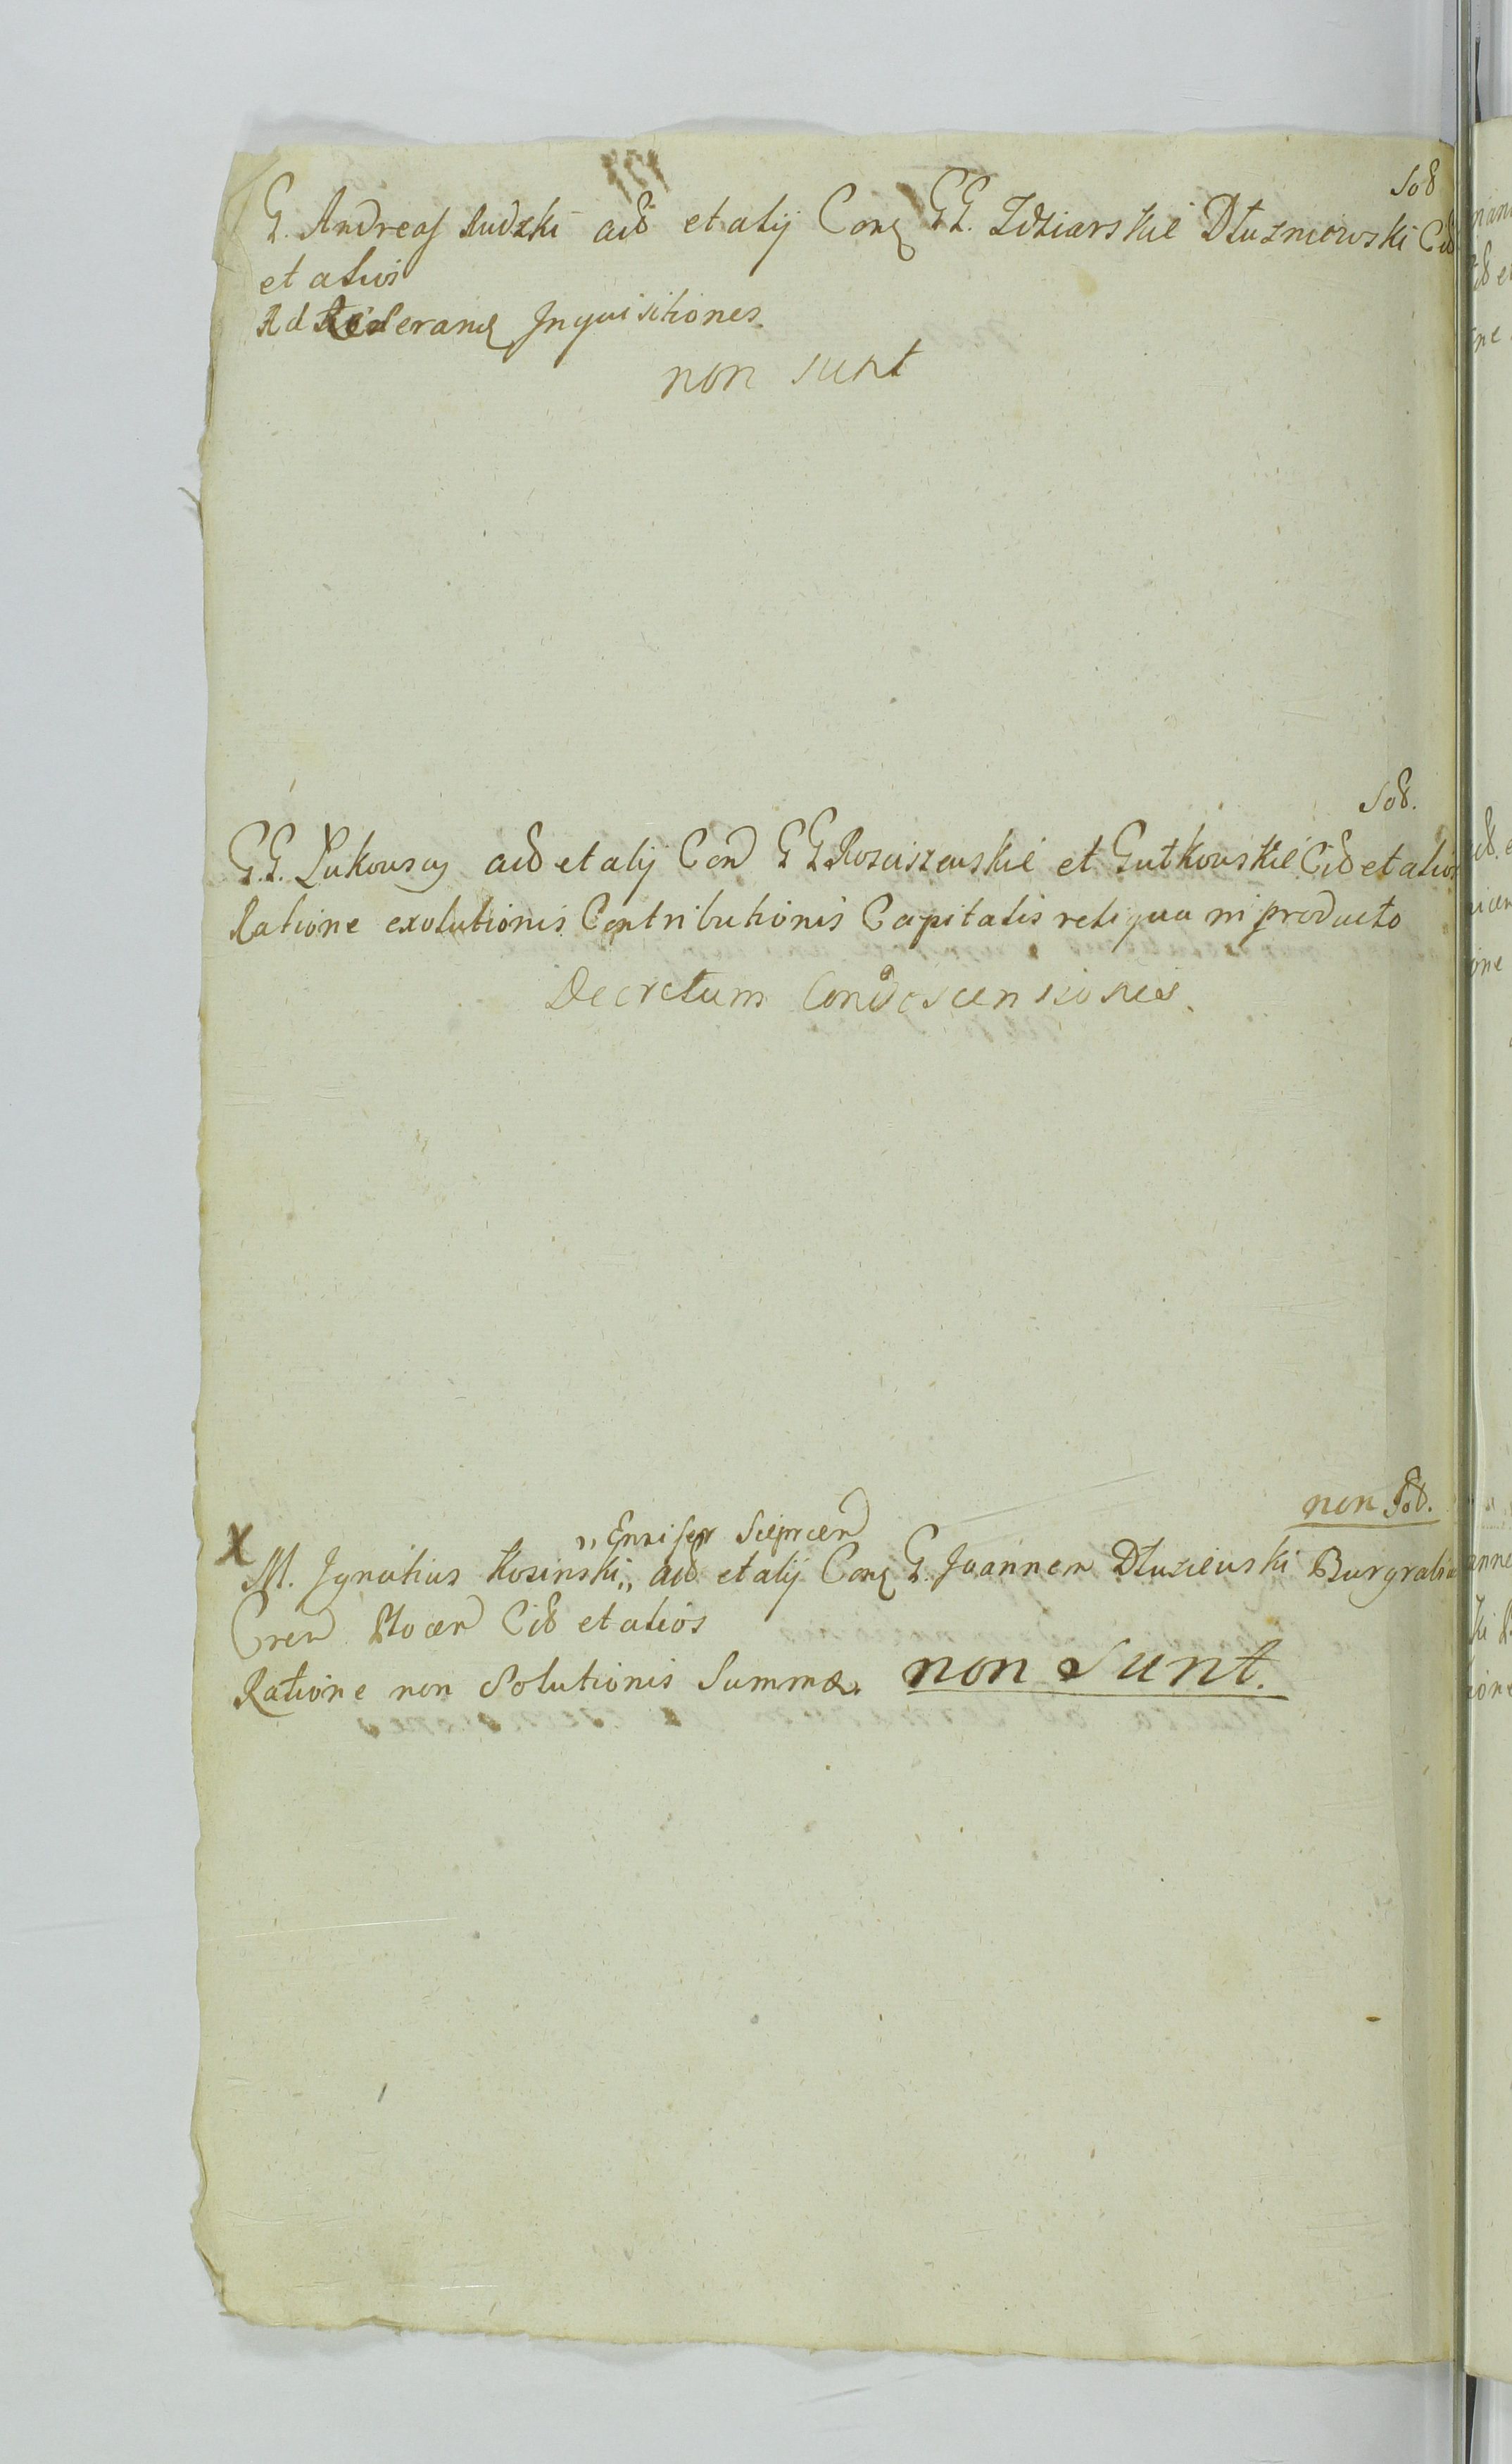 Sod
G. Andreas Rudzki aid et alij Conq GG. Zdziarskie Dłuzniowski Cid
et alios
Ad Reiderand Inquisitiones
non sunt
Sod.
G.G. Łukowscy aid et alij Con GG Rosciszewskie et Gutkowskie Cid et alios
Ratione exolutionis Contributionis Capitalis reliqua in producto
Decretum Condescensionis.
non Sod.
„Ensifer Sieprcen
X M. Ignatius Kosinski„ aid et alij Conq G. Joannem Dłuziewski Burgrabiu
Cren Plocen Cid et alios
Ratione non Solutionis Summæ. non Sunt.